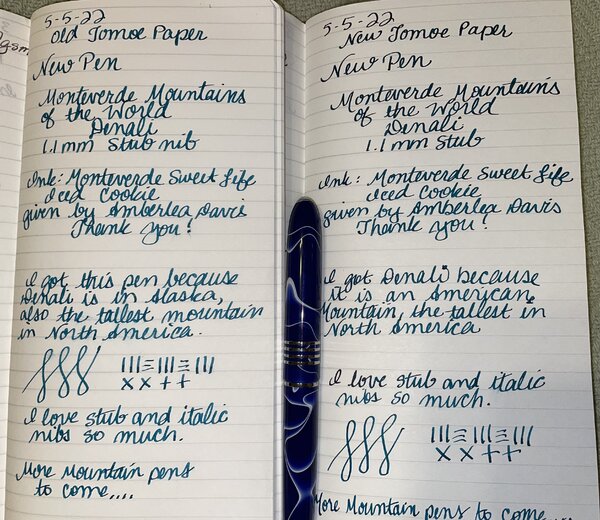 gsm
5-5-22
Old Tomoe Paper
New Pen
Monteverde Mountains
of the World
Denali
1.1mm Stub nib
Ink: Monteverde Sweet Life
Iced Cookie
given by Amberlea Davis
Thank you!
I got this pen because
Denali is in Alaska,
also the tallest mountain
in North America.
I love stub and italic
nibs so much.
More Mountain pens
to come....
5-5-22
New Tomoe Paper
New Pen
Monteverde Mountains
of the World
Denali
1.1mm Stub
Ink: Monteverde Sweet Life
Iced Cookie
given by Amberlea Davis
Thank you!
I got Denali because
it is an American
Mountain, the tallest in
North America
I love stub and italic
nibs so much.
More Mountain pens to come...